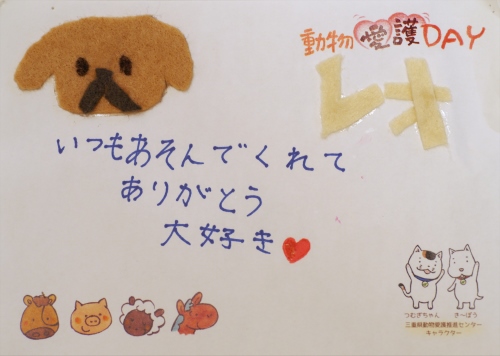 動物愛護DAY
レオ
いつもあそんでくれて
ありがとう
大好き
つむぎちゃん
き～ぼう
三重県動物愛護推進センター
キャラクター